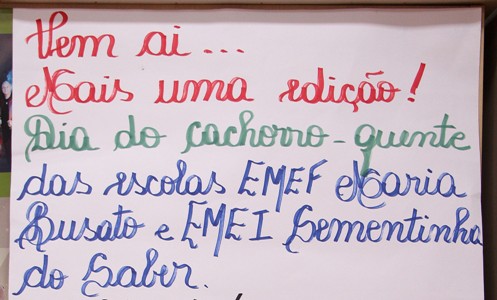 Vem ai...
Mais uma edição!
Dia do cachorro-quente
das escolas EMEF Maria
Busato e EMEI Sementinha
do Saber.